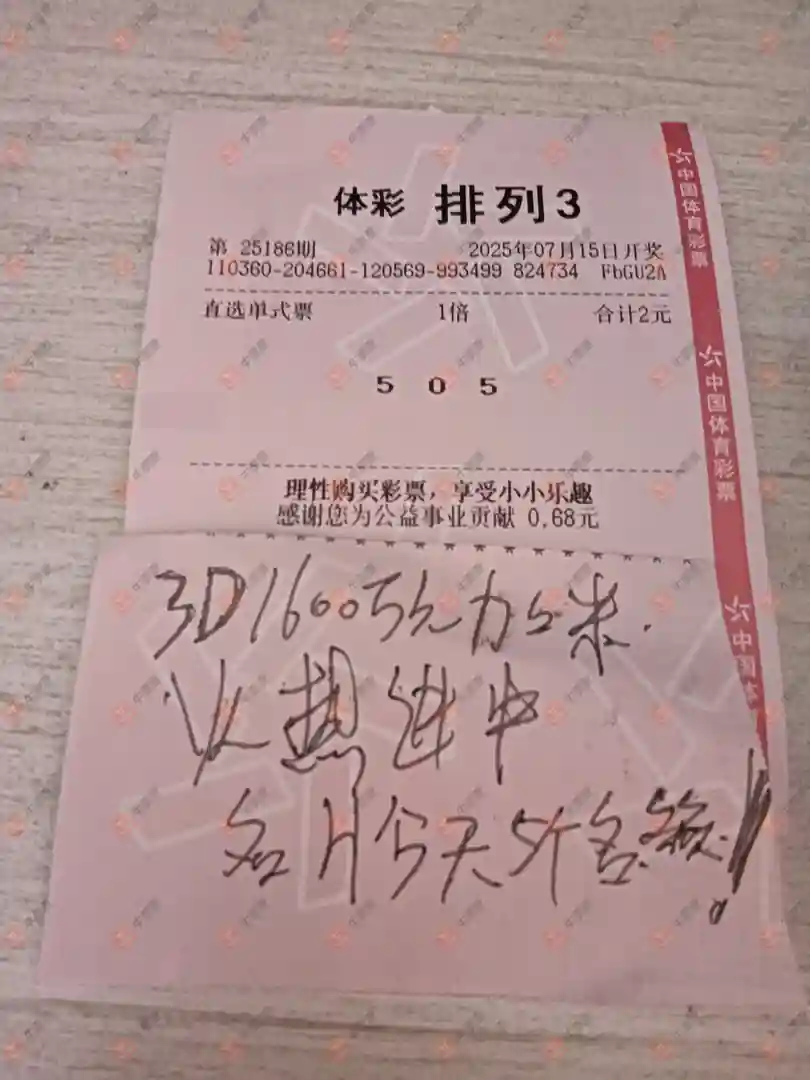 体彩 排列3
第 25186期 2025年07月15日开奖
110360-204661-120569-993499 824734 FbGU2A
直选单式票 1倍 合计2元
5 0 5
理性购买彩票，享受小小乐趣
感谢您为公益事业贡献 0.68元
3D1600万元
火热继中
名片今天5个名额！
中国体育彩票
中国体育彩票
中国体